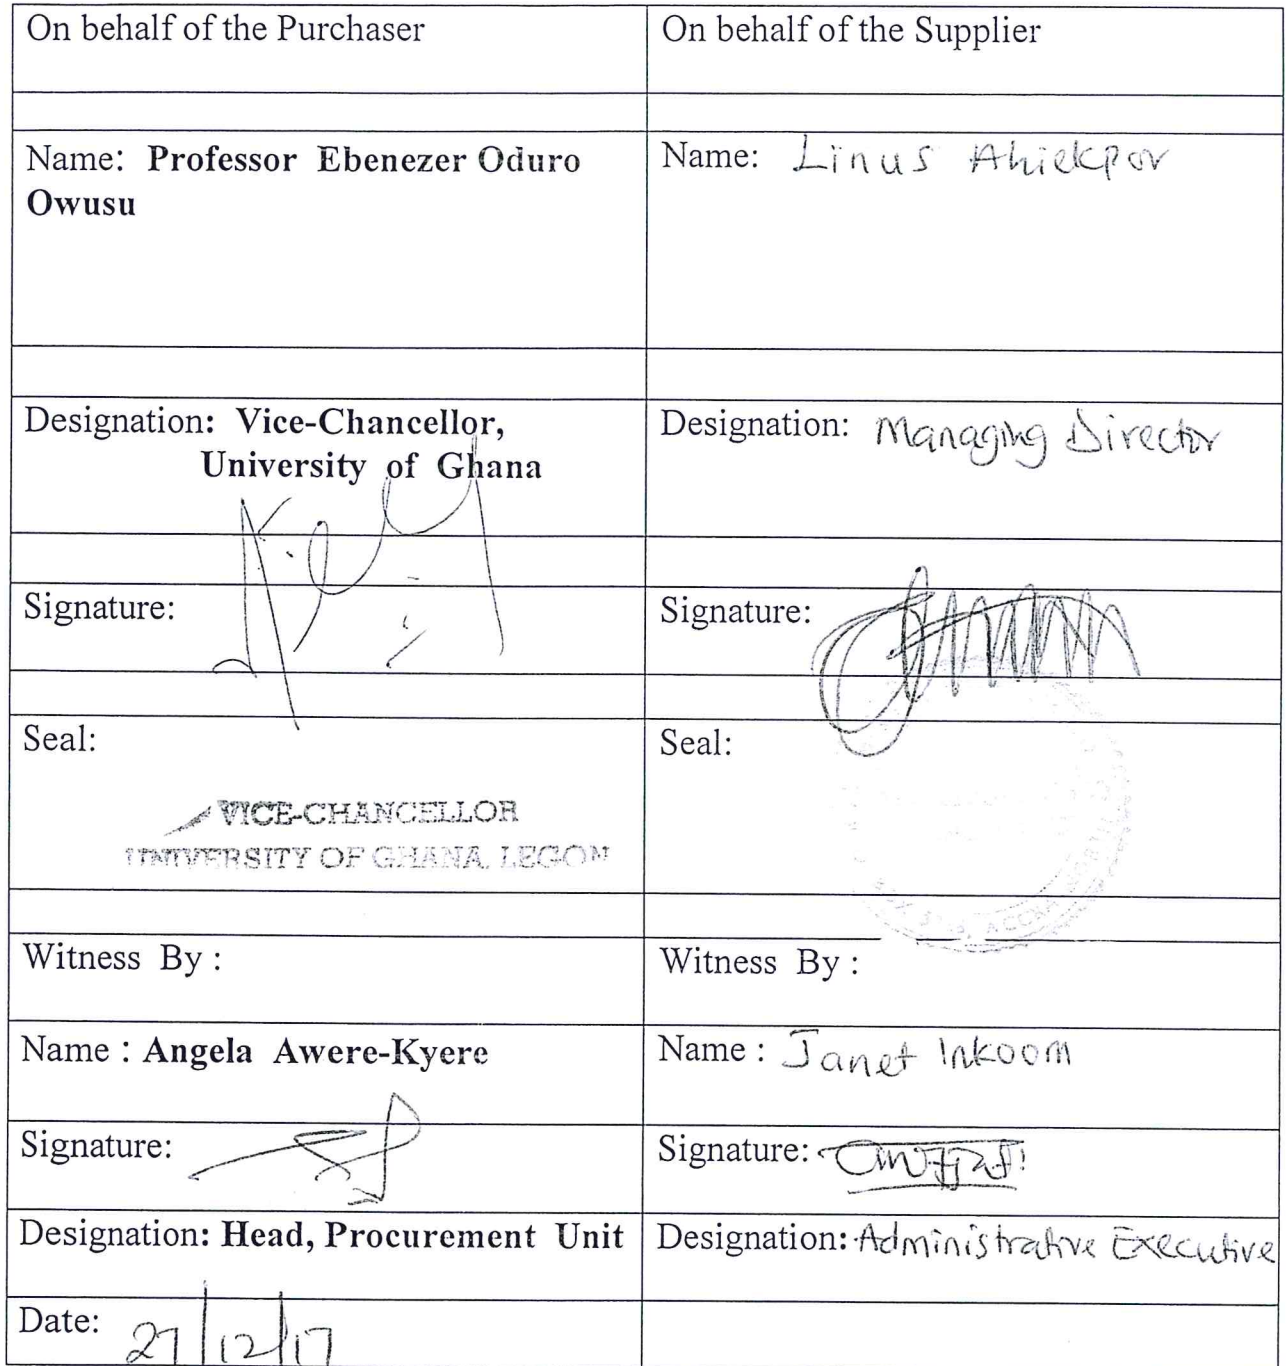 On behalf of the Purchaser
On behalf of the Supplier
Name: Professor Ebenezer Oduro
Owusu
Name: Linus Ahiekpor
Designation: Vice-Chancellor,
University of Ghana
Designation: Managing Director
Signature:
Signature:
Seal:
VICE-CHANCELLOR
UNIVERSITY OF GHANA, LEGON
Seal:
ACCRA
Witness By :
Witness By :
Name : Angela Awere-Kyere
Name : Janet Inkoom
Signature:
Signature:
Designation: Head, Procurement Unit
Designation: Administrative Executive
Date: 27/12/17